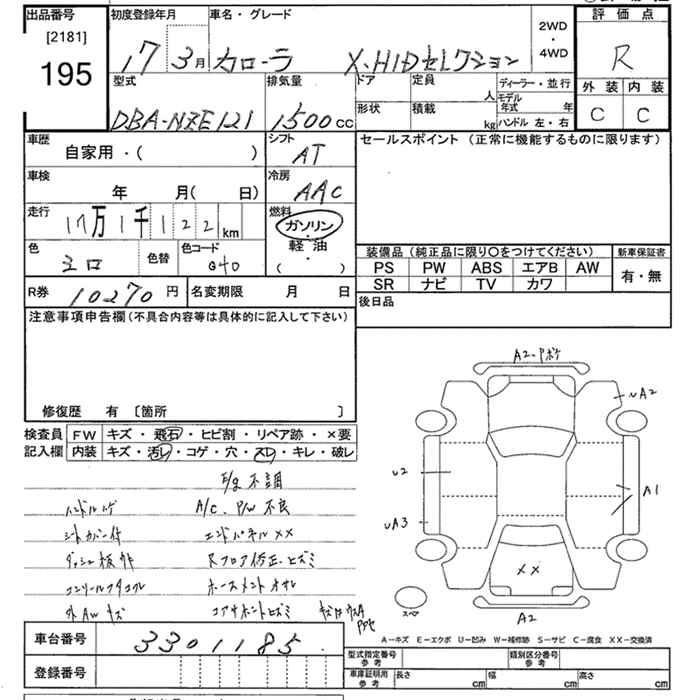 出品番号
[2181]
195
初度登録年月
17年3月
車名・グレード
カローラ X.HIDセレクション
2WD
・
4WD
評価点
R
外装 内装
C C
型式
DBA-NZE121
排気量
1500cc
ドア 定員 人
形状 積載 kg
ディーラー・並行
モデル年式 年
ハンドル 左・右
車歴
自家用・( )
シフト
AT
セールスポイント (正常に機能するものに限ります)
車検
年 月( 日)
冷房
AAC
走行
17万1千122km
燃料
ガソリン
・
軽油
( )
色
シロ
色替
色コード
040
装備品(純正品に限り〇をつけてください)
新車保証書
PS PW ABS エアB AW
SR ナビ TV カワ
有・無
R券 10270円
名変期限 月 日
後日品
注意事項申告欄(不具合内容等は具体的に記入して下さい)
修復歴 有〔箇所 〕
検査員
記入欄
FW キズ・飛石・ヒビ割・リペア跡・×要
内装 キズ・汚レ・コゲ・穴・スレ・キレ・破レ
E/g 不調
ハンドルハゲ A/C. P/W 不良
シートカバー付 エンドパネル××
Rフロア修正.ヒズミ
外AW キズ コアサポートヒズミ
A2
UA2
U2
UA3
A1
××
スペア
A2
車台番号
3301185
登録番号
A-キズ E-エクボ U-凹み W-補修跡 S-サビ C-腐食 XX-交換済
型式指定番号
参考
類別区分番号
参考
車庫証明用
参考
長さ cm 幅 cm 高さ cm